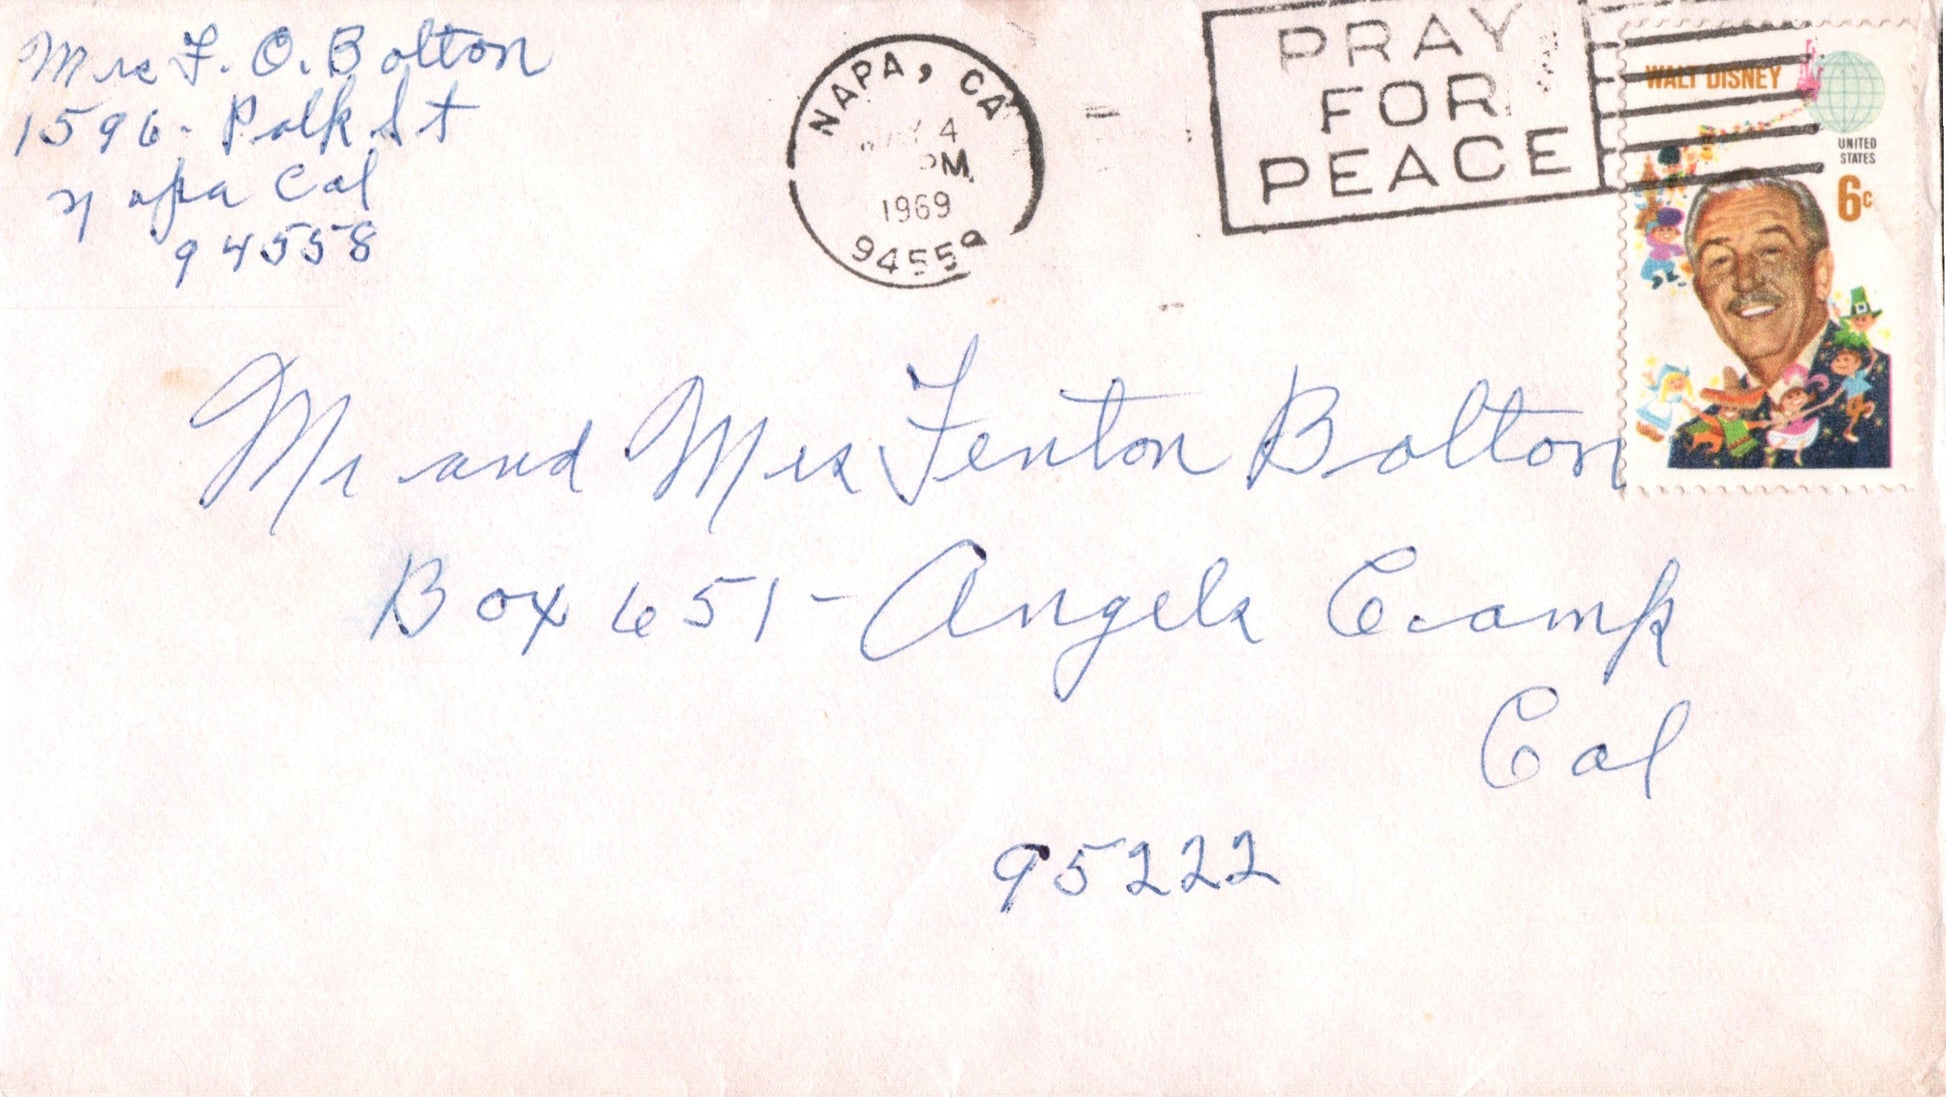 Mrs F. O. Bolton
1596 - Polk St
Napa Cal
94558
NAPA, CA
MAY 4
PM
1969
94559
PRAY
FOR
PEACE
WALT DISNEY
UNITED
STATES
6c
Mr and Mrs Fenton Bolton
Box 651 - Angels Camp
Cal
95222